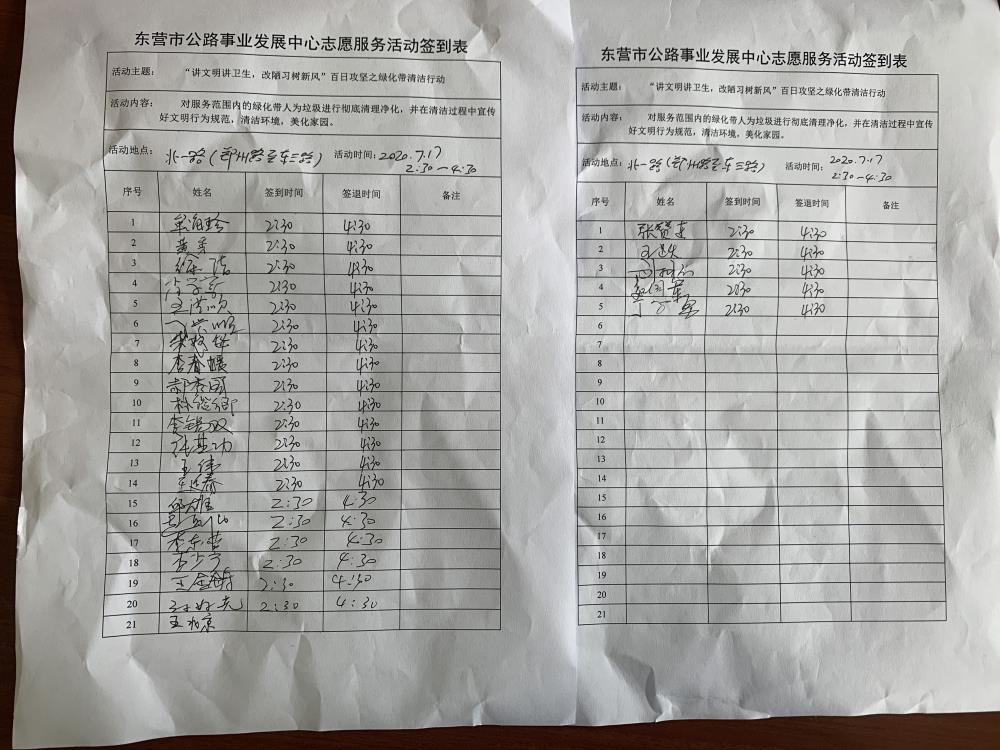 东营市公路事业发展中心志愿服务活动签到表
活动主题： “讲文明讲卫生，改陋习树新风”百日攻坚之绿化带清洁行动
活动内容： 对服务范围内的绿化带人为垃圾进行彻底清理净化，并在清洁过程中宣传
好文明行为规范，清洁环境，美化家园。
活动地点： 北一路（郑州路至东三路） 活动时间：2020.7.17
2:30—4:30
序号 姓名 签到时间 签退时间 备注
1 2:30 4:30
2 2:30 4:30
3 2:30 4:30
4 2:30 4:30
5 2:30 4:30
6 2:30 4:30
7 2:30 4:30
8 李春媛 2:30 4:30
9 2:30 4:30
10 2:30 4:30
11 2:30 4:30
12 2:30 4:30
13 王伟 2:30 4:30
14 2:30 4:30
15 2:30 4:30
16 2:30 4:30
17 李东营 2:30 4:30
18 2:30 4:30
19 2:30 4:30
20 2:30 4:30
21
东营市公路事业发展中心志愿服务活动签到表
活动主题： “讲文明讲卫生，改陋习树新风”百日攻坚之绿化带清洁行动
活动内容： 对服务范围内的绿化带人为垃圾进行彻底清理净化，并在清洁过程中宣传
好文明行为规范，清洁环境，美化家园。
活动地点： 北一路（郑州路至东三路） 活动时间： 2020.7.17
2:30—4:30
序号 姓名 签到时间 签退时间 备注
1 2:30 4:30
2 2:30 4:30
3 2:30 4:30
4 2:30 4:30
5 2:30 4:30
6
7
8
9
10
11
12
13
14
15
16
17
18
19
20
21